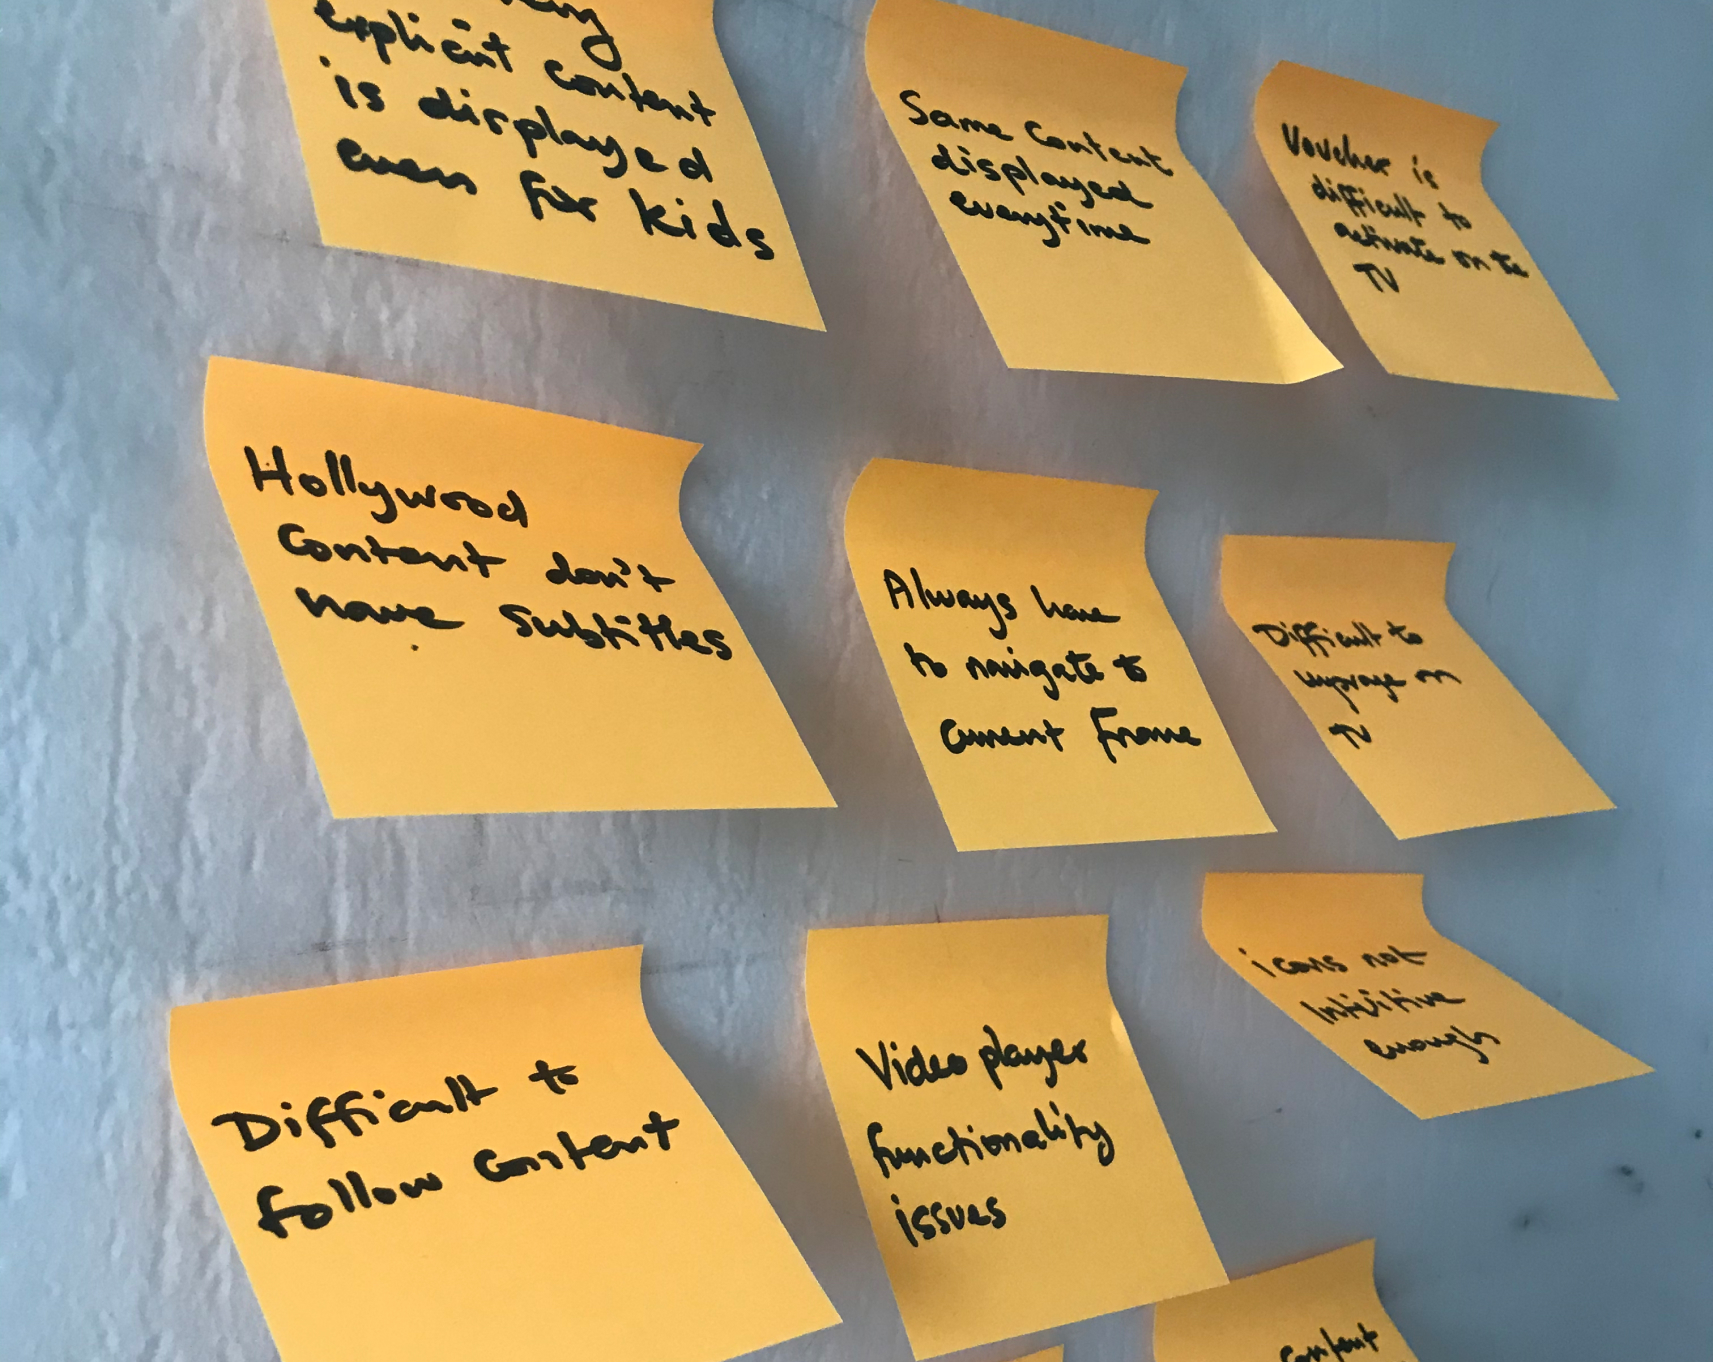 explicit content
is displayed
even for kids
Same Content
displayed
everytime
Voucher is
difficult to
activate on the
TV
Hollywood
Content don't
have subtitles
Always have
to navigate to
current Frame
Difficult to
on
TV
icons not
Intuitive
enough
Difficult to
follow content
Video player
functionality
issues
Content